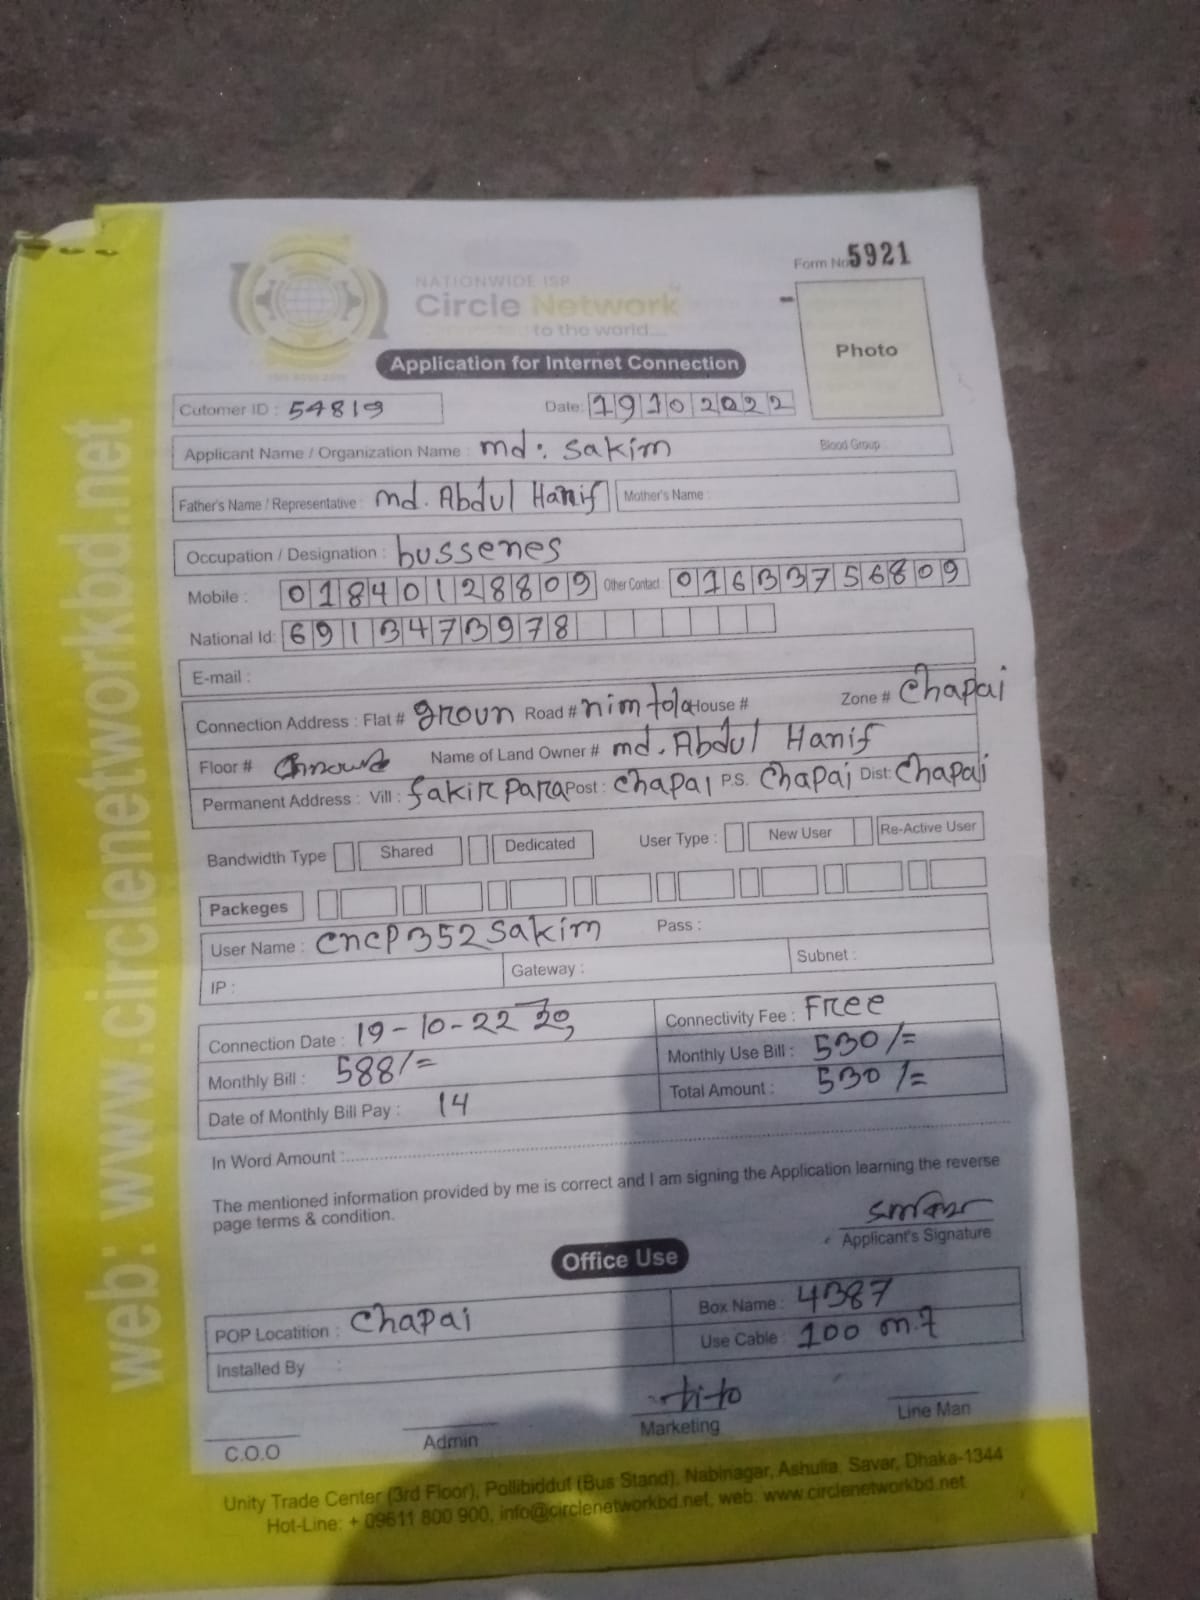 Form No 5921
NATIONWIDE ISP
Circle Network
to the world...
Photo
Application for Internet Connection
Cutomer ID : 54819 Date: 19102022
Applicant Name / Organization Name : md: sakim Blood Group :
Father's Name / Representative : md. Abdul Hanif Mother's Name :
Occupation / Designation : bussenes
Mobile : 01840128809 Other Contact : 01633756809
National Id: 6913473978
E-mail :
Connection Address : Flat # groun Road # nimtola House # Zone # Chapai
Floor # Name of Land Owner # md. Abdul Hanif
Permanent Address : Vill : fakir para Post : Chapai P.S. Chapai Dist: Chapai
Bandwidth Type Shared Dedicated User Type : New User Re-Active User
Packeges
User Name : cncp352sakim Pass :
IP : Gateway : Subnet :
Connection Date : 19-10-22 Connectivity Fee : Free
Monthly Bill : 588/= Monthly Use Bill : 530/=
Date of Monthly Bill Pay : 14 Total Amount : 530/=
In Word Amount :
The mentioned information provided by me is correct and I am signing the Application learning the reverse
page terms & condition.
Applicant's Signature
Office Use
POP Locatition : Chapai Box Name : 4387
Installed By : Use Cable : 100
tito
C.O.O Admin Marketing Line Man
Unity Trade Center (3rd Floor), Pollibiddut (Bus Stand), Nabinagar, Ashulia. Savar, Dhaka-1344
Hot-Line: + 09611 800 900, info@circlenetworkbd.net, web: www.circlenetworkbd.net
web: www.circlenetworkbd.net